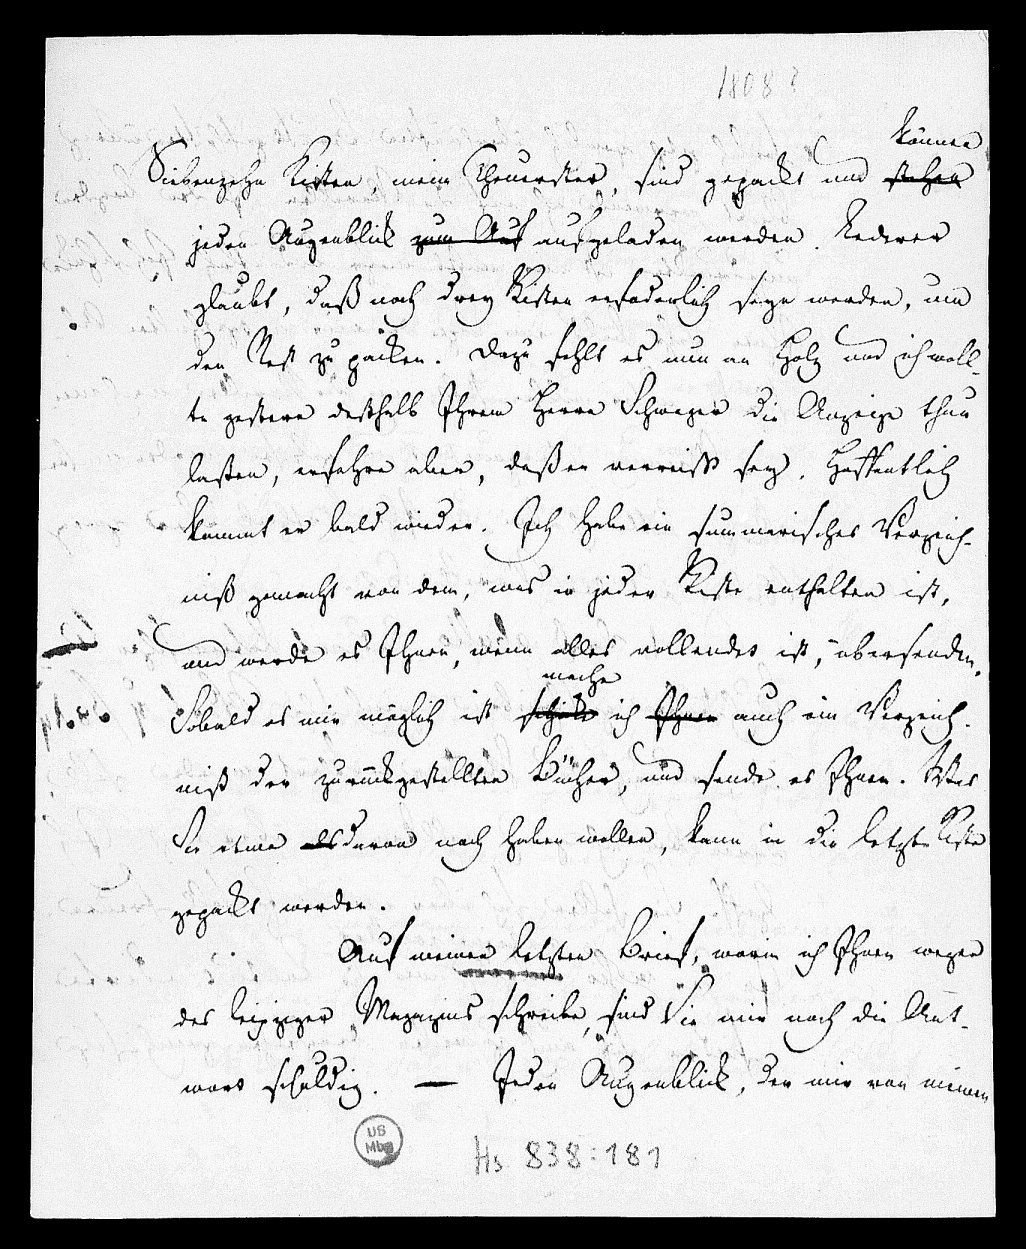 1808?
können
Siebenzehn Kisten, mein Theuerster, sind gepackt und stehen
jeden Augenblick zum Auf aufgeladen werden. Lederer
glaubt, daß noch drey Kisten erfoderlich seyn werden, um
den Rest zu packen. Dazu fehlt es nun an Holz und ich woll-
te gestern deßhalb Ihrem Herrn Schwager die Anzeige thun
lassen, erfahre aber, daß er verreist sey. Hoffentlich
kommt er bald wieder. Ich habe ein summarisches Verzeich-
niß gemacht von dem, was in jeder Kiste enthalten ist,
und werde es Ihnen, wenn alles vollendet ist, übersenden.
mache
Sobald es mir möglich ist schicke ich Ihnen auch ein Verzeich-
niß der zurückgestellten Bücher, und sende es Ihnen. Was
Sie etwa als davon noch haben wollen, kann in die letzte Kiste
gepackt werden.
Auf meinen letzten Brief, worin ich Ihnen wegen
des Leipziger Magazins schreibe, sind Sie mir noch die Ant-
wort schuldig. — Jeden Augenblick, der mir von meinen
UB
Mbg
Hs 838:181